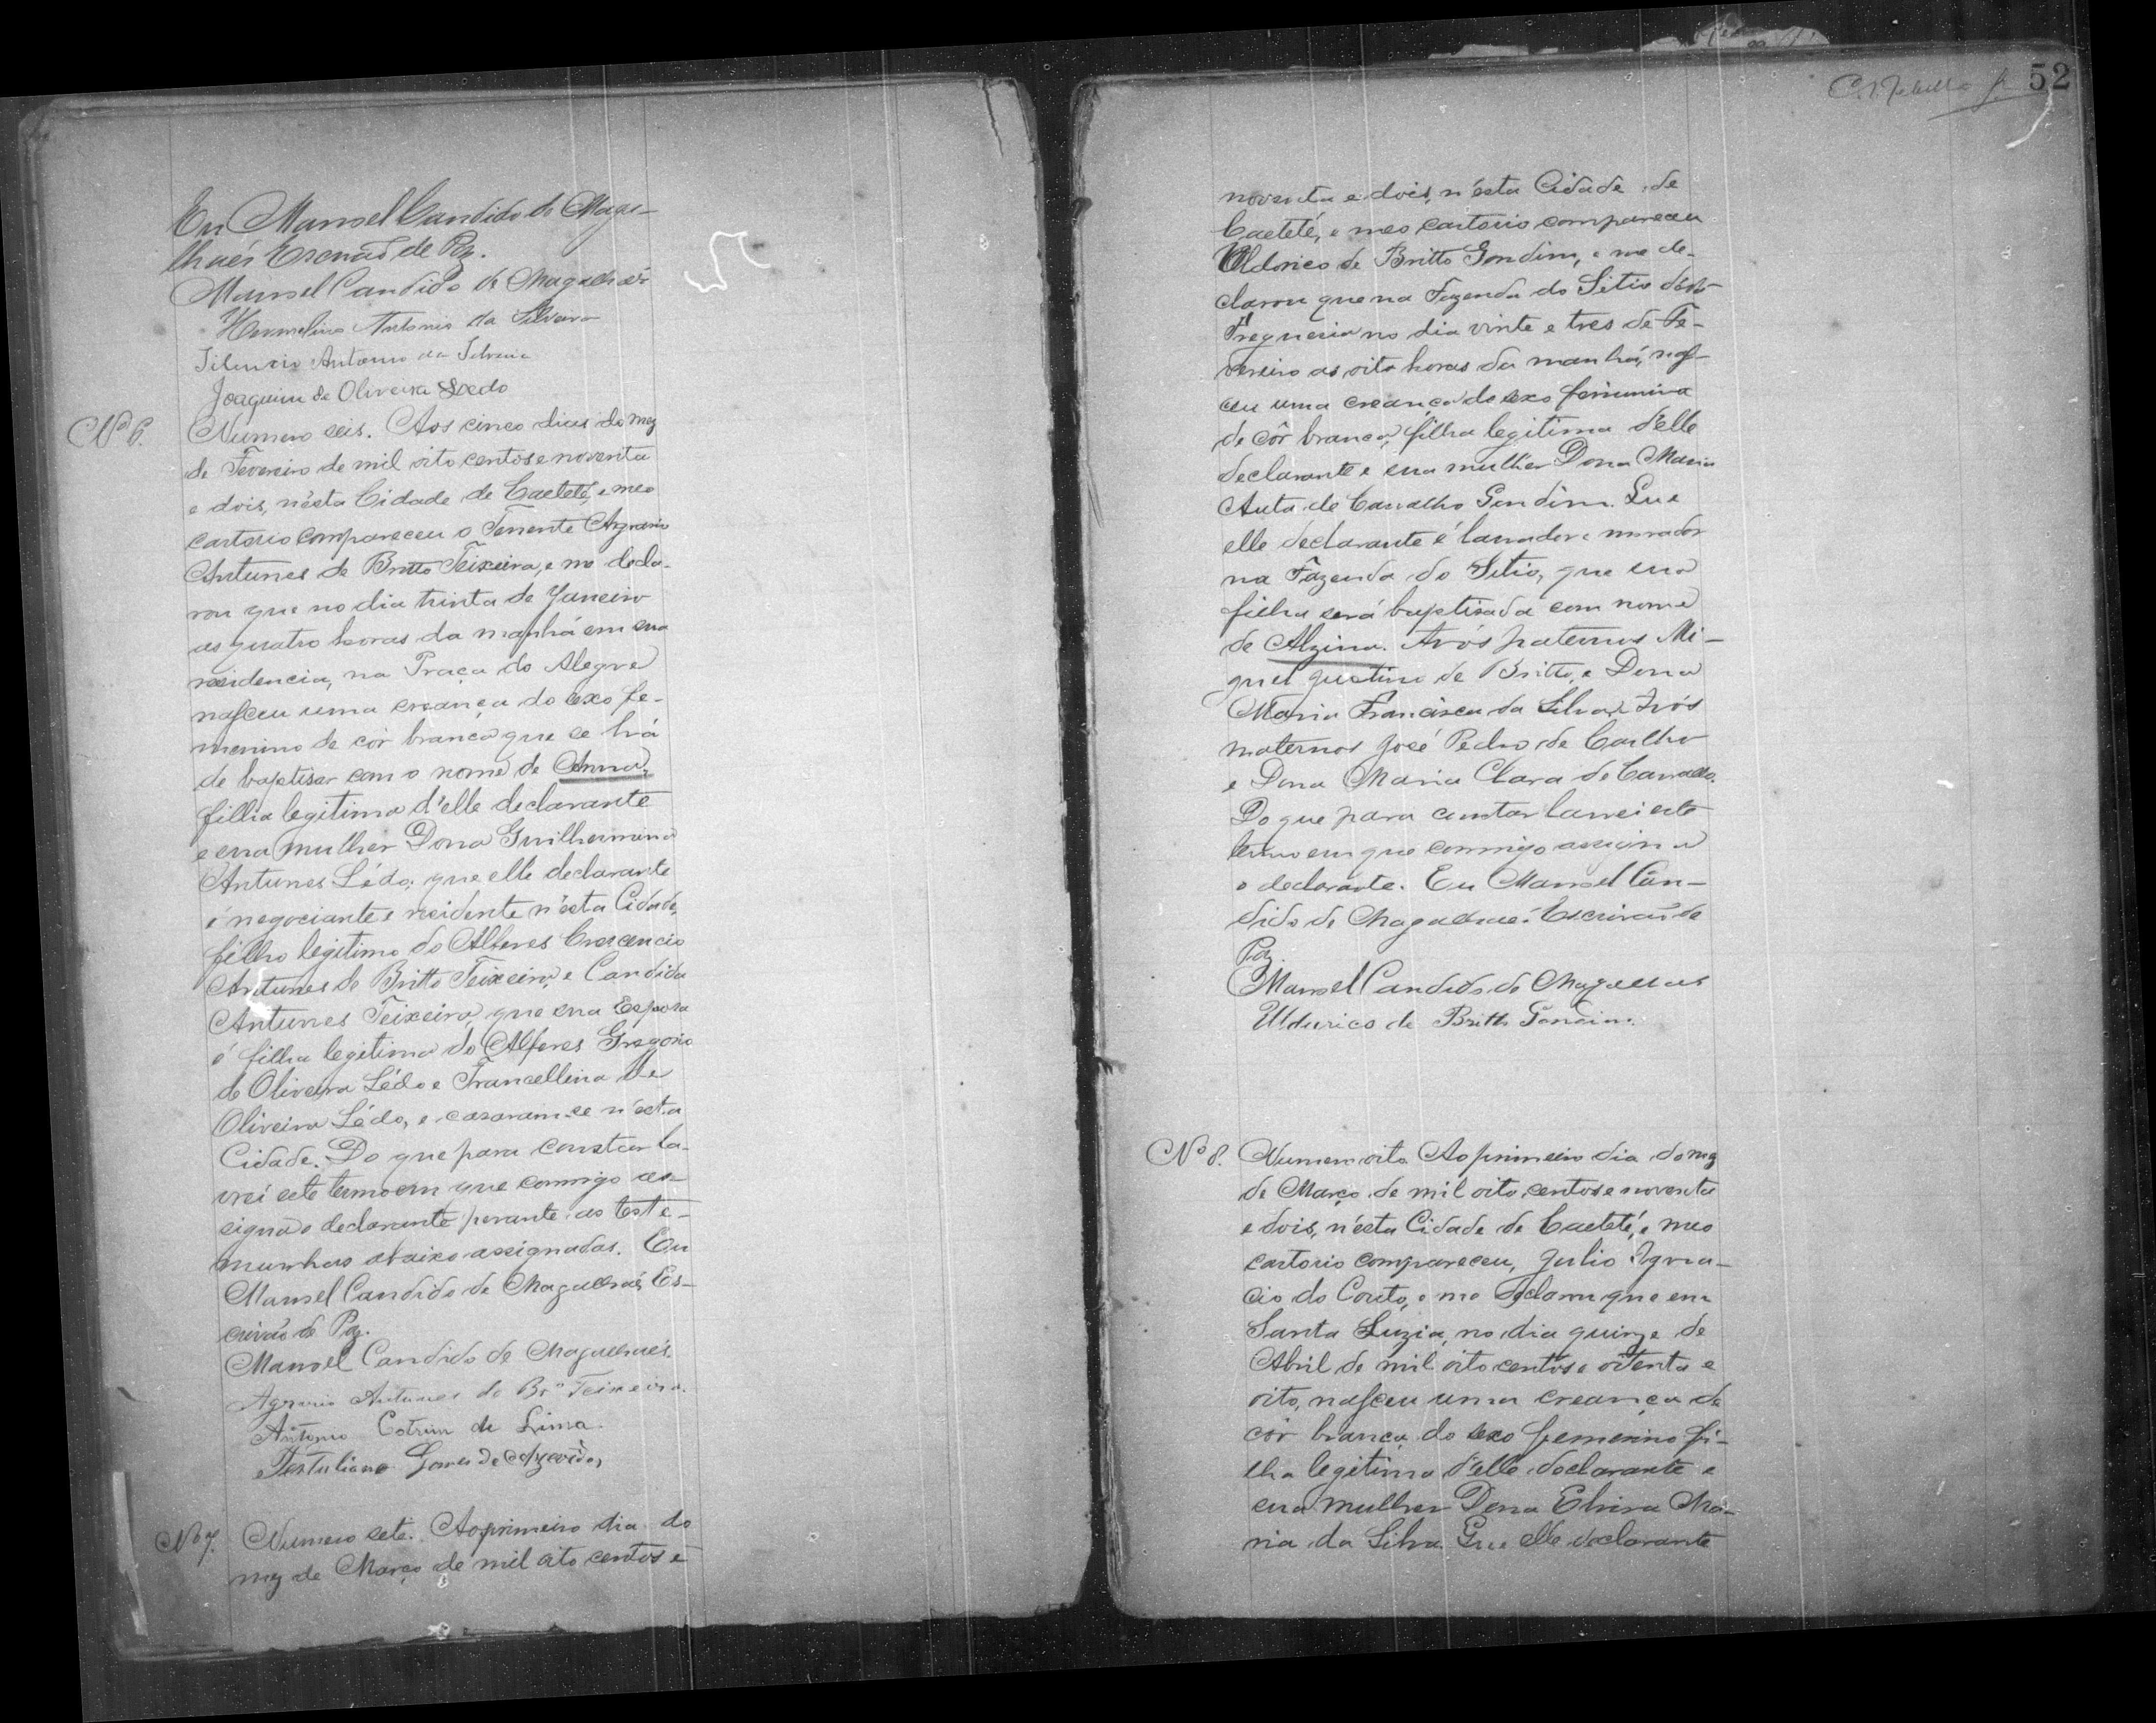 Eu Manoel Candido de Maga-
lhaés Escrivaõ de Paz.
Manoel Candido de Magalhaés
Hermelino Antonio da Silveira
Silencio Antonio da Silveira
Joaquim de Oliveira Ledo
Nº 6.
Numero seis. Aos cinco dias do mez
de Fevereiro de mil oito centos e noventa
e dois, n'esta Cidade de Caeteté, e meo
cartorio compareceu o Tenente Agrario
Antunes de Britto Teixeira, e me decla-
rou que no dia trinta de Janeiro
as quatro horas da manhá em sua
residencia, na Praça do Alegre
nasceu uma creança do sexo fe-
menino de côr branca que se há
de baptisar com o nome de Anna,
filha legitima d'elle declarante
e sua mulher Dona Guilhermina
Antunes Lédo; que elle declarante
é negociante e residente n'esta Cidade,
filho legitimo do Alferes Crescencio
Antunes de Britto Teixeira, e Candida
Antunes Teixeira, que sua Esposa
é filha legitima do Alferes Gregorio
de Oliveira Lédo e Francellina de
Oliveira Lédo, e casaram-se n'esta
Cidade. Do que para constar la-
vrei este termo em que commigo as-
signa o declarante perante as teste-
munhas abaixo assignadas. Eu
Manoel Candido de Magalhaés Es-
crivão de Paz.
Manoel Candido de Magalhaés.
Agrario Antunes de Brº Teixeira.
Antonio Cotrim de Lima.
Tertuliano Gomes de Azevedo,
Nº 7.
Numero sete. Ao primeiro dia do
mez de Março de mil oito centos e
52
noventa e dois, n'esta Cidade de
Caeteté, e meo cartorio compareceu
Uldorico de Britto Gondim, e me de-
clarou que na Fazenda do Sitio desta
Freguesia no dia vinte e tres de Fe-
vereiro as oito horas da manhá, nas-
ceu uma creança do sexo feminina
de côr branca, filha legitima d'elle
declarante e sua mulher Dona Maria
Auta de Carvalho Gondim. Que
elle declarante é lavrador e morador
na Fazenda do Sitio, que sua
filha será baptisada com nome
de Alzina. Avós paternos Mi-
guel Justino de Britto, e Dona
Maria Francisca da Silva, Avós
maternos José Pedro de Carlho
e Dona Maria Clara de Carvalho.
Do que para constar lavrei este
termo em que commigo assigna
o declarante. Eu Manoel Can-
dido de Magalhaés Escrivaõ de
Paz.
Manoel Candido de Magalhaés
Uldurico de Britto Gondim.
Nº 8.
Numero oito. Ao primeiro dia do mez
de Março de mil oito centos e noventa
e dois, n'esta Cidade de Caeteté, e meo
cartorio compareceu, Julio Igna-
cio do Couto, e me declarou que em
Santa Luzia, no dia quinze de
Abril de mil oito centos e oitenta e
oito, nasceu uma creança de
côr branca do sexo femenino fi-
lha legitima d'elle declarante e
sua mulher Dona Elvira Ma-
ria da Silva. Que elle declarante